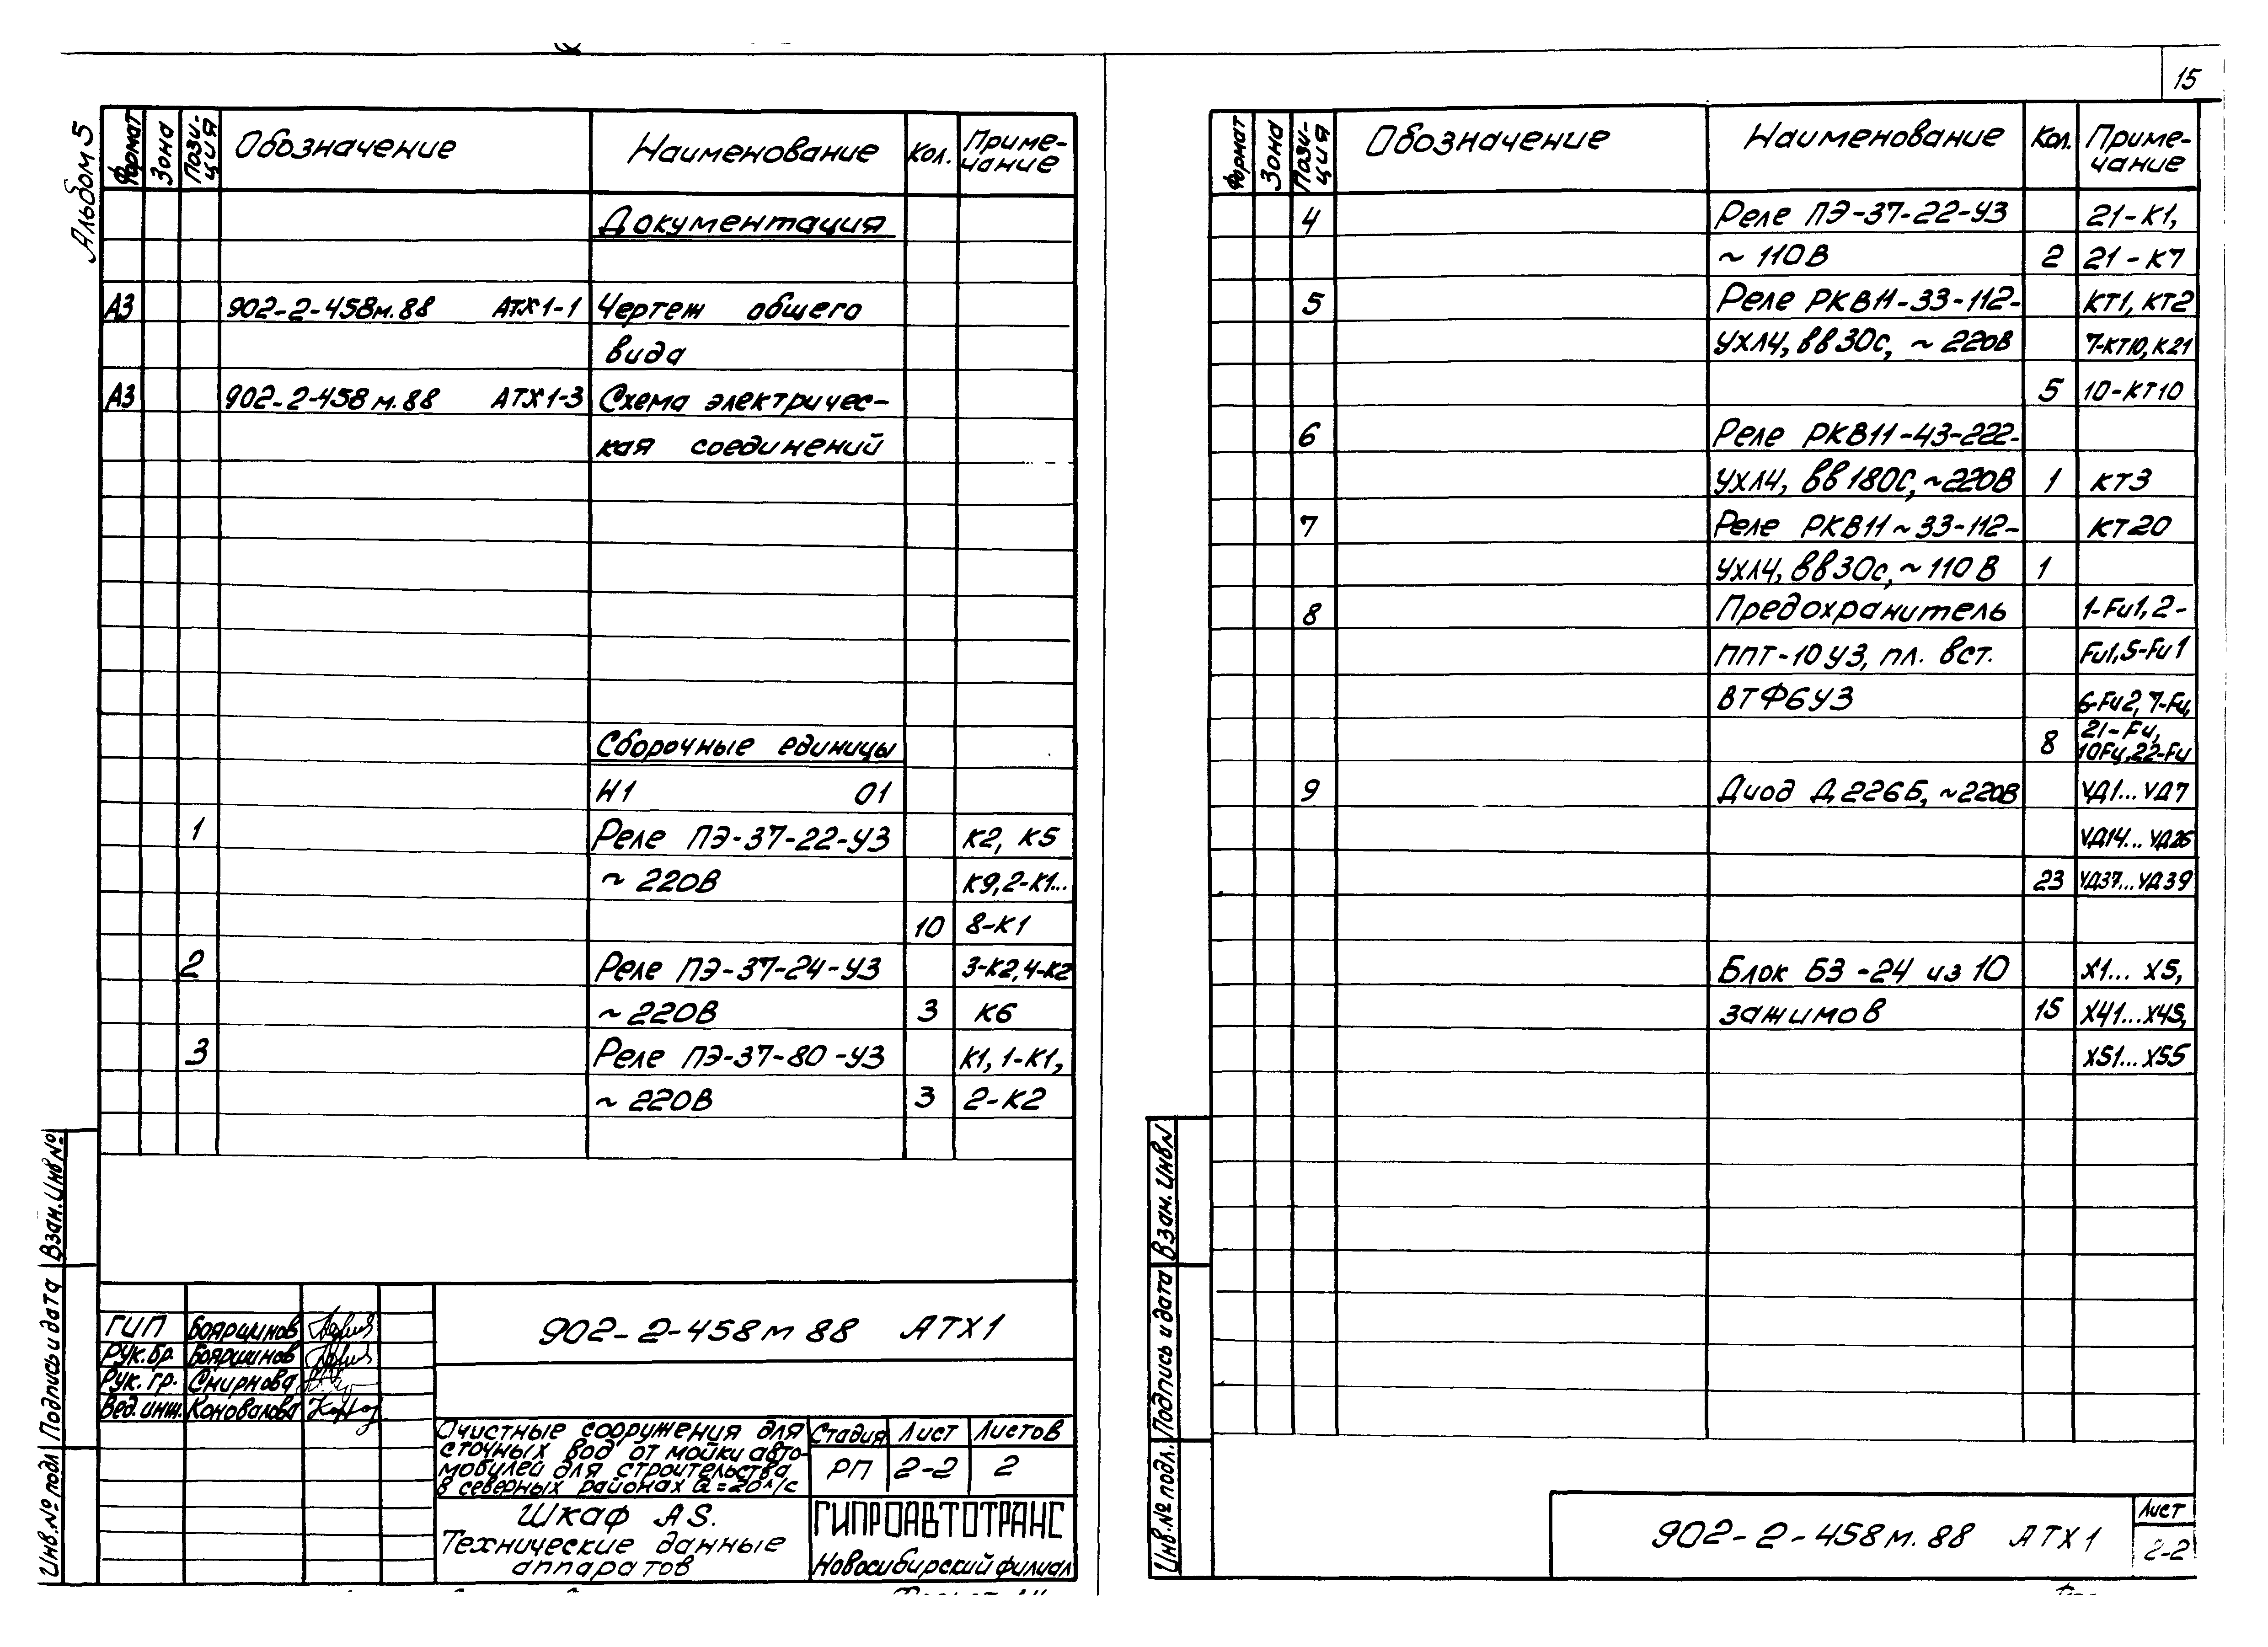 15
Альбом 5
Формат Зона Пози-ция Обозначение Наименование Кол. Приме-чание
Документация
А3 902-2-458м.88 АТХ1-1 Чертеж общего
вида
А3 902-2-458м.88 АТХ1-3 Схема электричес-
кая соединений
Сборочные единицы
И1 01
1 Реле ПЭ-37-22-У3 К2, К5
~ 220В К9,2-К1...
10 8-К1
2 Реле ПЭ-37-24-У3 3-К2,4-К2
~ 220В 3 К6
3 Реле ПЭ-37-80-У3 К1, 1-К1,
~ 220В 3 2-К2
Взам.инв№
Подпись и дата
Инв.№подл
ГИП Бояршинов
Рук.бр. Бояршинов
Рук.гр. Смирнова
Вед.инж. Коновалова
902-2-458м88 АТХ1
Очистные сооружения для
сточных вод от мойки авто-
мобилей для строительства
в северных районах Q=20л/с
Стадия Лист Листов
РП 2-2 2
Шкаф AS.
Технические данные
аппаратов
ГИПРОАВТОТРАНС
Новосибирский филиал
Формат Зона Пози-ция Обозначение Наименование Кол. Приме-чание
4 Реле ПЭ-37-22-У3 21-К1,
~ 110В 2 21-К7
5 Реле РКВ11-33-112- КТ1, КТ2
УХЛ4, вв30с, ~ 220В 7-КТ10, К21
5 10-КТ10
6 Реле РКВ11-43-222-
УХЛ4, вв180с, ~220В 1 КТ3
7 Реле РКВ11~33-112- КТ20
УХЛ4, вв30с, ~110В 1
8 Предохранитель 1-Fu1, 2-
ППТ-10У3, пл. вст. Fu1, 5-Fu1
ВТФ6У3 6-Fu2, 7-Fu,
21-Fu,
8 10Fu,22-Fu
9 Диод Д226Б, ~220В УД1...УД7
УД14...УД26
23 УД37...УД39
Блок БЗ-24 из 10 Х1...Х5,
зажимов 15 Х41...Х45,
Х51...Х55
Взам.инв.N
Подпись и дата
Инв.№подл.
902-2-458м.88 АТХ1
Лист
2-2